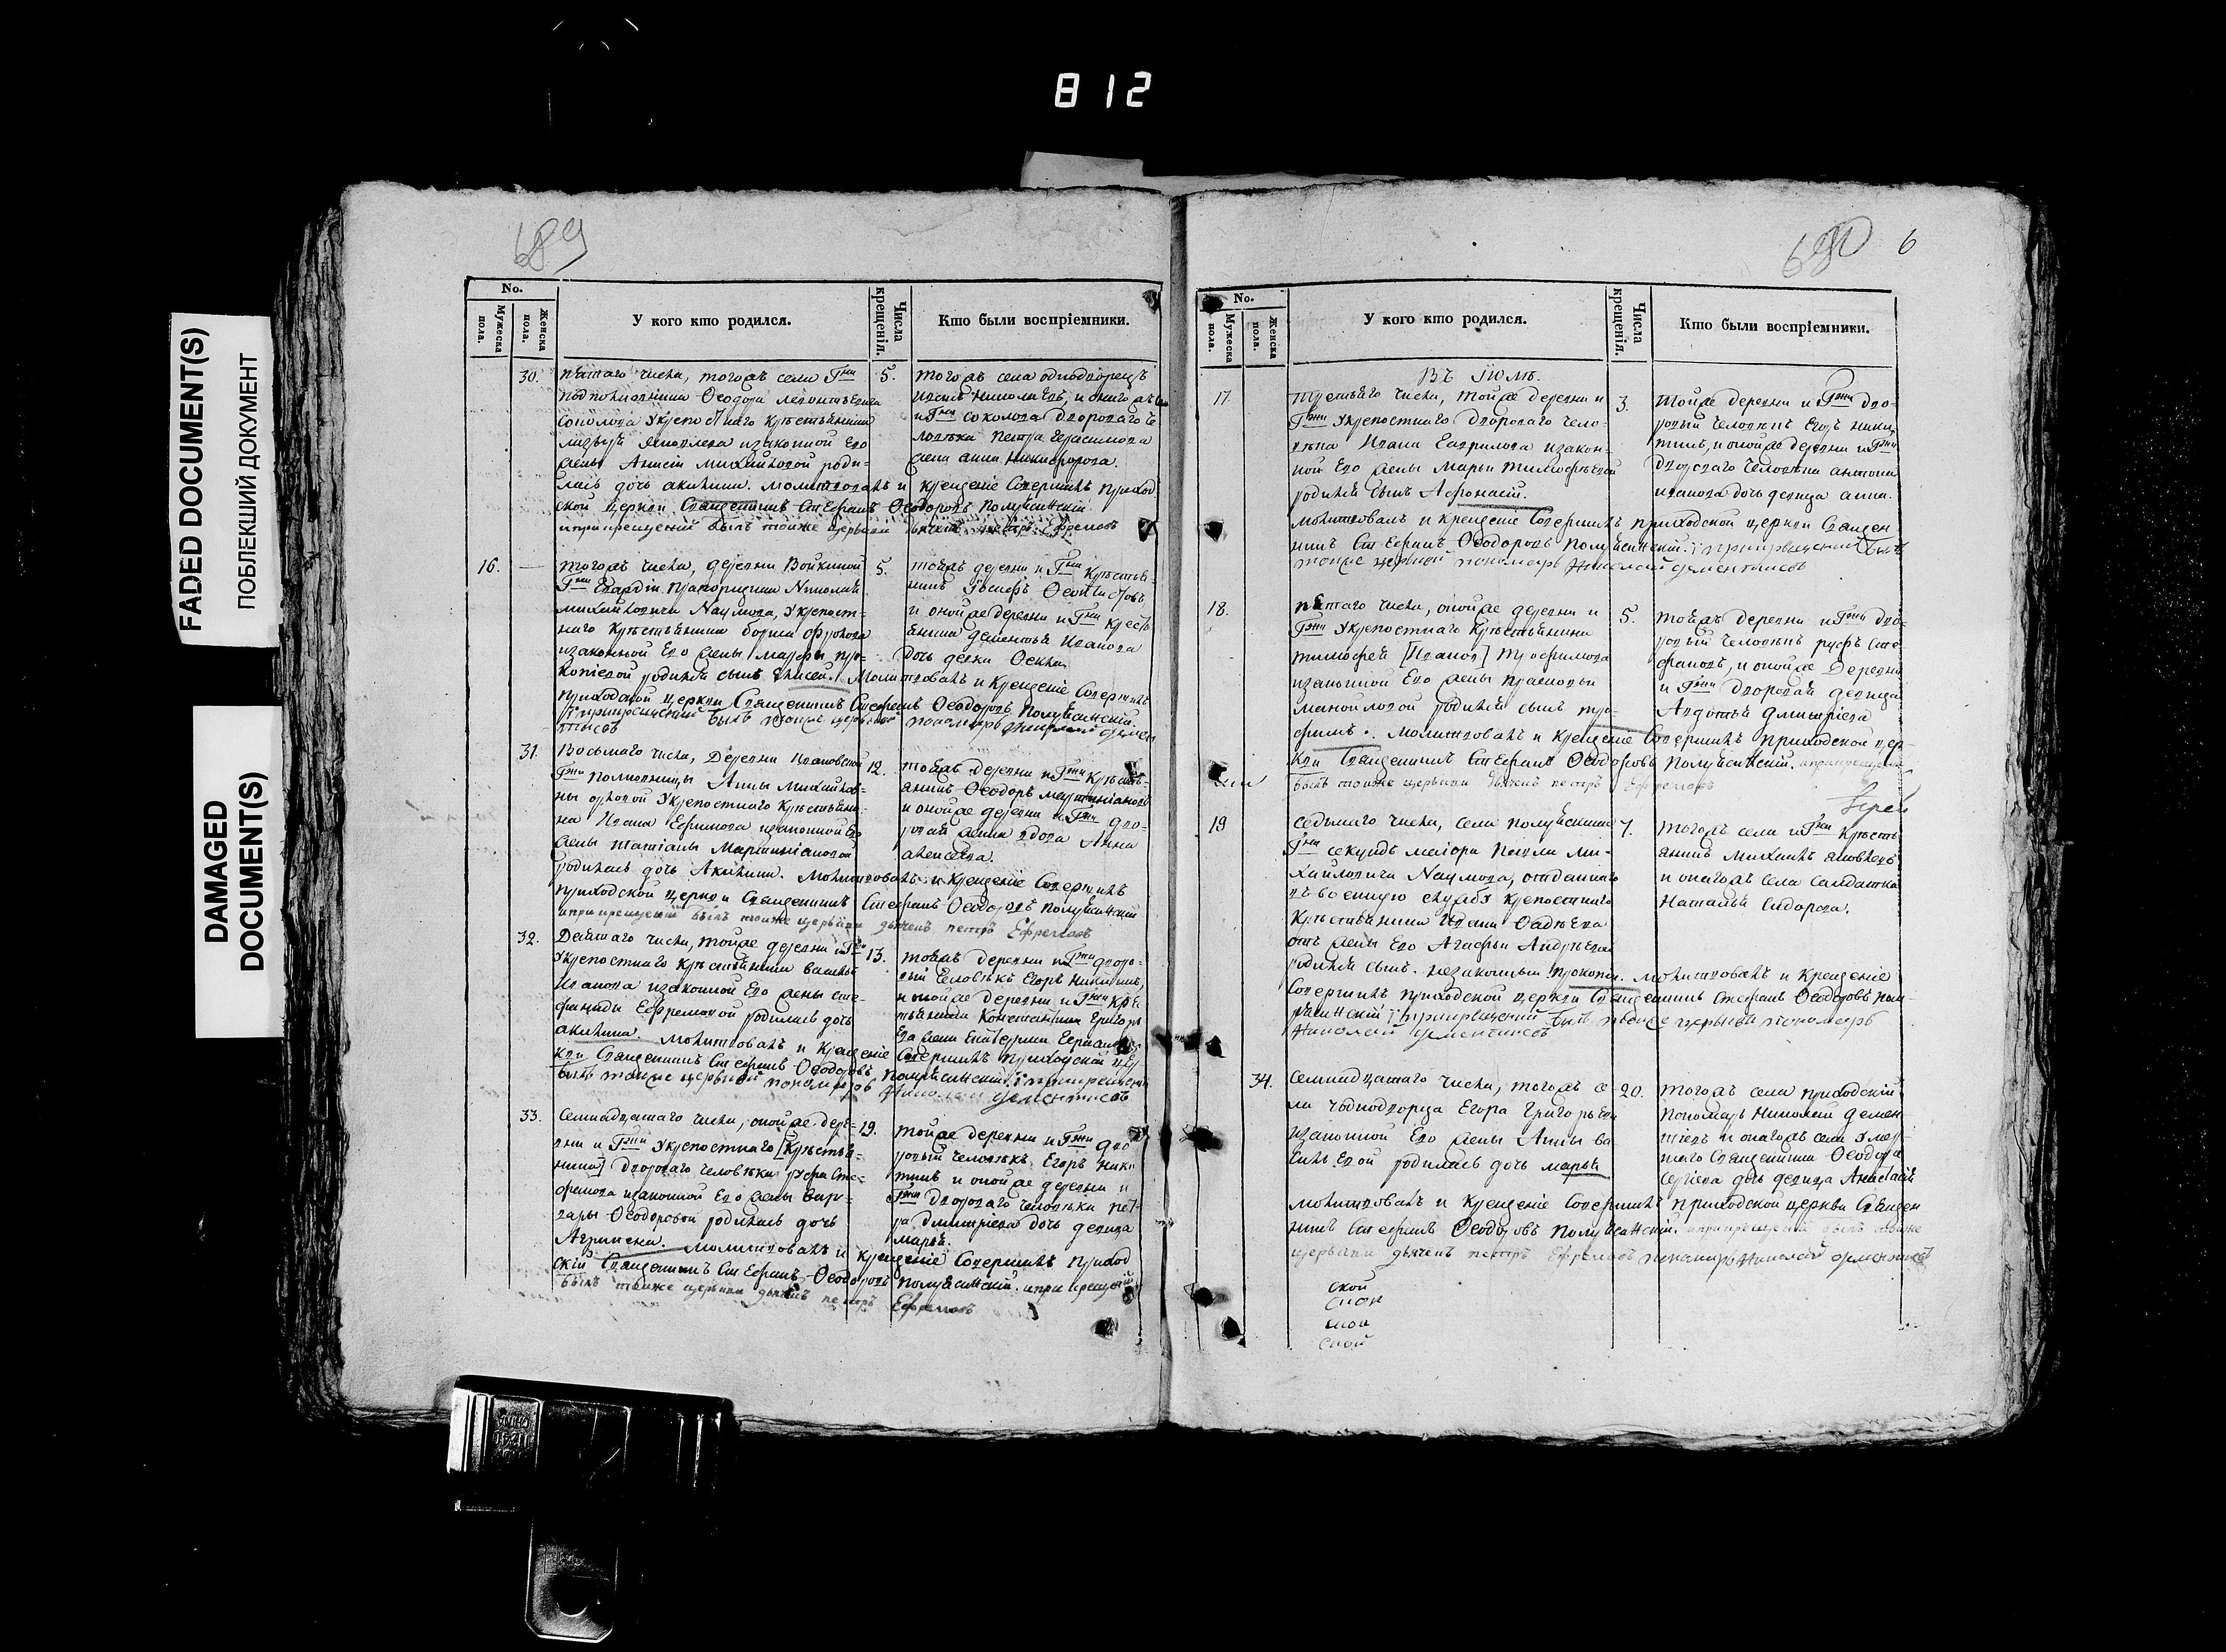 812
FADED DOCUMENT(S)
ПОБЛЕКШИЙ ДОКУМЕНТ
DAMAGED
DOCUMENT(S)
689
No.
Мужеска пола.
Женска пола.
У кого кто родился.
Числа крещенія.
Кто были воспріемники.
30.
пятаго числа, тогожъ села Гна
подполковника Ѳеодора
Соколова укрепостнаго крестьянина
изаконной Его
жены Анисіи Михайловой роди-
лась дочь акилина. молитвовалъ и крещеніе совершилъ приход
ской церкви Священникъ Стефанъ Ѳеодоровъ Полубенскій
и при крещеніи былъ тойже церькви дьячекъ петръ Ефремовъ
5.
тогожъ села однодворецъ
и оногожъ
и Гна соколова двороваго че
ловека петра герасимова
жена анна никифорова.
16.
—
тогожъ числа, деревни Войкиной
Гна Гвардіи прапорщика Николая
михайловича Наумова, укрепост-
наго крестьянина бориса фролова
изаконной Его жены марфы про-
копіевой родился сынъ Елисей. Молитвовалъ и крещеніе совершилъ
приходской церкви Священникъ Стефанъ Ѳеодоровъ Полубенскій.
при крещеніи былъ тойже церькви пономарь Николай Демен
тиевъ
5.
тойжъ деревни и Гна крестья-
нинъ Іосифъ
и онойже деревни и Гна кресть
янина дементья Иванова
дочь девка
31.
Восьмаго числа, Деревни Ивановской
Гжи полковницы Анны михайлов-
ны орловой укрепостнаго крестьяни-
на Ивана Ефимова изаконной Его
жены татіаны Мартиніановой
родилась дочь Акилина. молитвовалъ и крещеніе совершилъ
приходской церкви Священникъ Стефанъ Ѳеодоровъ Полубенскій
и при крещеніи былъ тойже церькви дьячекъ петръ Ефремовъ
12.
тойжъ деревни и Гжи кресть-
янинъ Ѳеодоръ мартиніановъ
и онойже деревни и Гжи дво-
ровая жена вдова Анна
алексеева.
32.
Девятаго числа, тойже деревни и Гжи
укрепостнаго крестьянина василья
Иванова изаконной Его жены сте-
фаниды Ефремовой родилась дочь
акилина. молитвовалъ и крещеніе совершилъ приходской цер
кви Священникъ Стефанъ Ѳеодоровъ Полубенскій. при крещеніи
былъ тойже церькви пономарь Николай Дементиевъ
13.
тойжъ деревни и Гжи дворо-
вый человекъ Егоръ никитинъ,
и тойже деревни и Гжи кре
стьянина Константина Григорь
ева жена Екатерина
33.
Семнадцатаго числа, онойже дере-
вни и Гжи укрепостнаго [крестья-
нина] двороваго человека руфа сте-
фанова изаконной Его жены вар-
вары Ѳеодоровой родилась дочь
Агрипена. Молитвовалъ и крещеніе совершилъ приход
скій Священникъ Стефанъ Ѳеодоровъ Полубенскій. и при крещеніи
былъ тойже церькви дьячекъ петръ Ефремовъ
19.
тойже деревни и Гжи дво
ровый человекъ Егоръ ники
тинъ и онойже деревни и
Гжи двороваго человека пет-
ра Дмитріева дочь девица
марья.
690
6
No.
Мужеска пола.
Женска пола.
У кого кто родился.
Числа крещенія.
Кто были воспріемники.
Въ Іюлѣ.
17.
третьяго числа, тойже деревни и
Гжи укрепостнаго двороваго чело-
века Ивана Гаврилова изакон-
ной Его жены Марьи тимофеевой
родился сынъ Афонасій.
молитвовалъ и крещеніе совершилъ приходской церкви Священ
никъ Стефанъ Ѳеодоровъ Полубенскій. при крещеніи былъ
тойже церькви пономарь Николай дементиевъ
3.
тойже деревни и Гжи дво-
ровый человекъ Егоръ ники
тинъ, и онойже деревни и Гжи
двороваго человека антона
иванова дочь девица анна.
18.
пятаго числа, онойже деревни и
Гжи укрепостнаго крестьянина
тимофея [Иванов] трофимова
изаконной Его жены прасковьи
мануйловой родился сынъ тро-
фимъ. молитвовалъ и крещеніе совершилъ приходской цер-
кви Священникъ Стефанъ Ѳеодоровъ Полубенскій. и при крещеніи
былъ тойже церькви дьячекъ петръ Ефремовъ
5.
тойжъ деревни и Гжи дво-
ровый человекъ руфъ сте
фановъ, и онойже Деревни
и Гжи дворовая девица
Авдотья дмитріева
Іерей
19
седьмаго числа, села полубенскаго
Гна секундъ маіора Павла ми-
хайловича Наумова, отданнаго
въ военную службу крепостнаго
крестьянина Ивана Ѳадеева
отъ жены Его Агафьи Андреевой
родился сынъ незаконный прокопій. молитвовалъ и крещеніе
совершилъ приходской церкви Священникъ Стефанъ Ѳеодоровъ Пол-
убенскій при крещеніи былъ тойже церькви пономарь
Николай Дементиевъ
7.
тогожъ села и Гна кресть
янинъ михаилъ яковлевъ
и оногожъ села салдатка
Наталья Сидорова.
34.
семнадцатаго числа, тогожъ се
ла однодворца Егора Григорьева
изаконной Его жены Анны ва
сильевой родилась дочь марья
молитвовалъ и крещеніе совершилъ приходской церкви Священ
никъ Стефанъ Ѳеодоровъ Полубенскій. и при крещеніи былъ тойже
церькви дьячекъ петръ Ефремовъ пономарь Николай Дементиевъ
20.
тогожъ села приходскій
пономарь николай демен
тіевъ и оногожъ села умер-
шаго Священника Ѳеодора
Сергіева дочь девица Анастасія
ской
ской
ской
ской